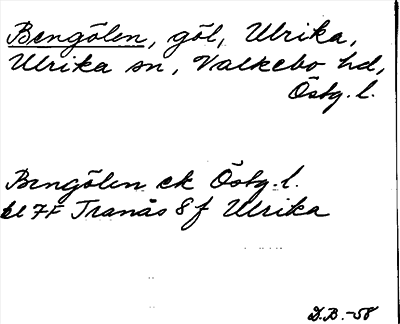 Bengölen, göl, Ulrika,
Ulrika sn, Valkebo hd,
Östg. l.
Bengölen ek Östg. l.
bl 7F Tranås 8 f Ulrika
D.B.-58